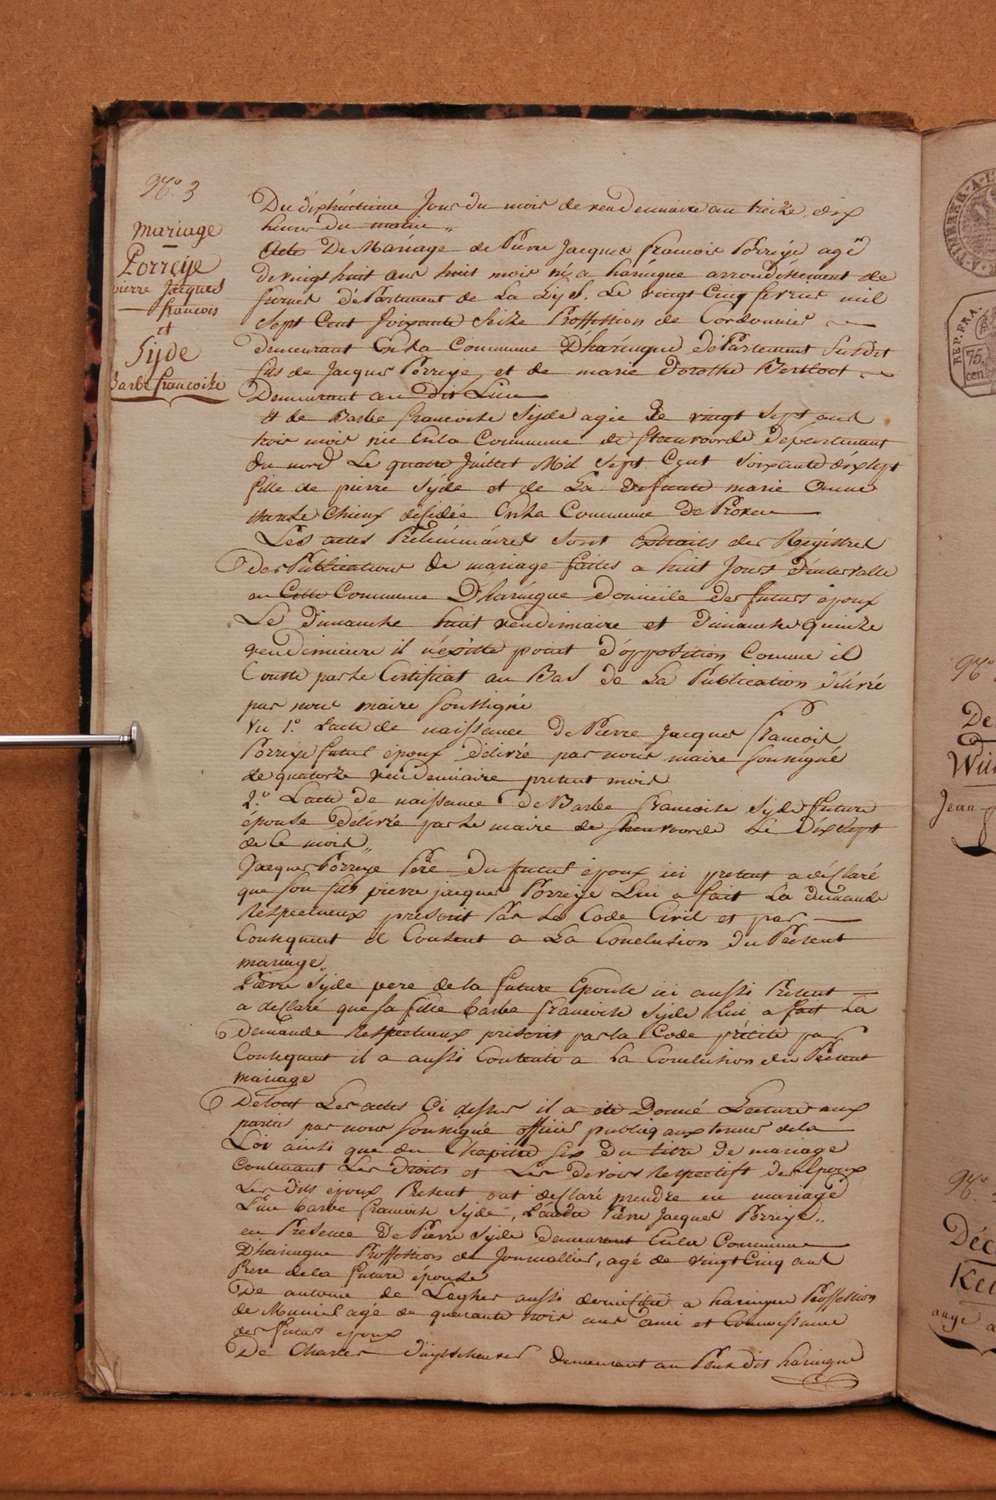 No. 3
mariage
Porreye
pierre Jacques
francois
et
Syde
barbe francoise
Du dixhuitieme Jour du mois de vendemiaire an treize dix
heures du matin
Acte De Mariage de Pierre Jacques francois Porreye agé
de vingt huit ans huit mois né a haringue arrondissement de
furnes département de La Lys. Le vingt Cinq fevrier mil
Sept Cent Soixante Seize Proffession de Cordonnier
demeurant en La Commune D'haringue département Susdit
fils de Jacques Porreye, et de marie Dorothé
Demeurant au dit Lieu
et de Barbe francoise Syde agée de vingt Sept ans
trois mois née en la Commune de Steenvoorde departement
du nord Le quatre Juillet Mil Sept Cent Soixante dix sept
fille de pierre Syde et de La defunte marie Anne
en La Commune De Proven
Les actes Préliminaires Sont extraits des Registres
des Publications de mariage faites a huit Jours d'intervalle
en Cette Commune D'haringue Domicile des futurs époux
Le dimanche huit vendimiaire et dimanche quinze
vendimiaire il n'existe point d'opposition Comme il
Conste par Le Certificat au Bas de La Publication délivré
par nous maire Soussigné
Vu 1o. L'acte de naissance de Pierre Jacques francois
Porreye futur époux délivré par nous maire Sousigné
le quatorze vendemiaire present mois
2o. L'acte de naissance de Barbe francoise Syde future
épouse délivré par Le maire de Steenvoorde Le Dixsept
de Ce mois
Jacques Porreye Pere Du futur époux ici present a déclaré
que Son fils pierre jacques Porreye Lui a fait La demande
Respectueux prescrit Par Le Code Civil et par
Consequent il Consent a La Conclusion du Present
mariage
Pierre Syde pere de la future Epouse ici aussi Present
a declaré que sa fille barbe francoise Syde lui a fait La
demande Respectueux prescrit par la Code précité par
Consequent il a aussi Contenté a La Conclusion du Présent
mariage
De tout Les actes Ci dessus il a été Donné Lecture aux
partis par nous Sousigné officier publiq aux termes de la
Loi ainsi que du Chapitre Six du titre De mariage
Contenant Les droits et Les devoirs Respectifs des Epoux
Les dits époux Present ont declaré prendre en mariage
L'une barbe francoise Syde, L'autre Pierre Jacques Porreye
en Presence De Pierre Syde demeurant en La Commune
D'haringue Proffession de Journallier, agé de vingt Cinq ans
frere de la future épouse
De antoine de Laegher aussi domicilié a haringue Proffession
de agé de quarante trois ans ami et Connoissance
des futurs époux
De Charles demeurant au Lieux dit haringue